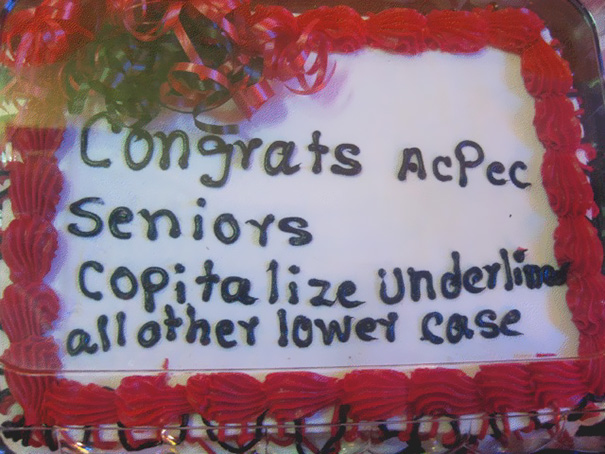 Congrats AcPec
Seniors
Copitalize underlined
all other lower case